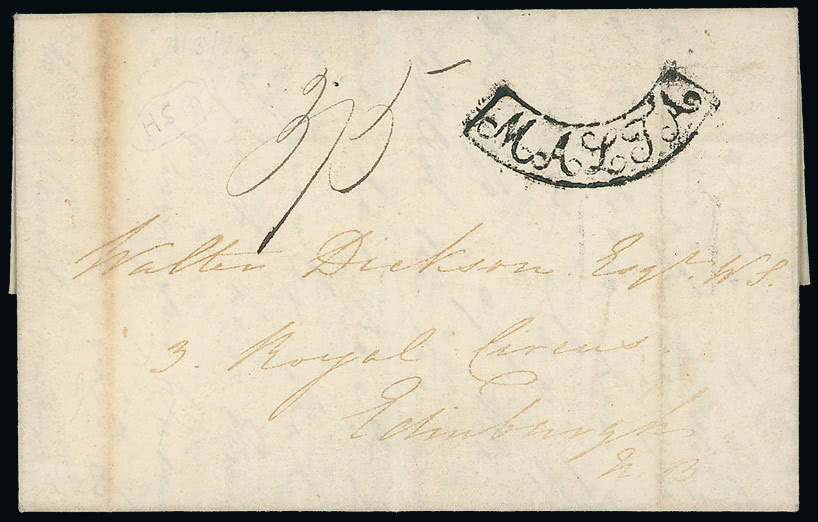 3/5
MALTA
Walter Dickson Esqr. W.S.
3. Royal Circus
Edinburgh
N B